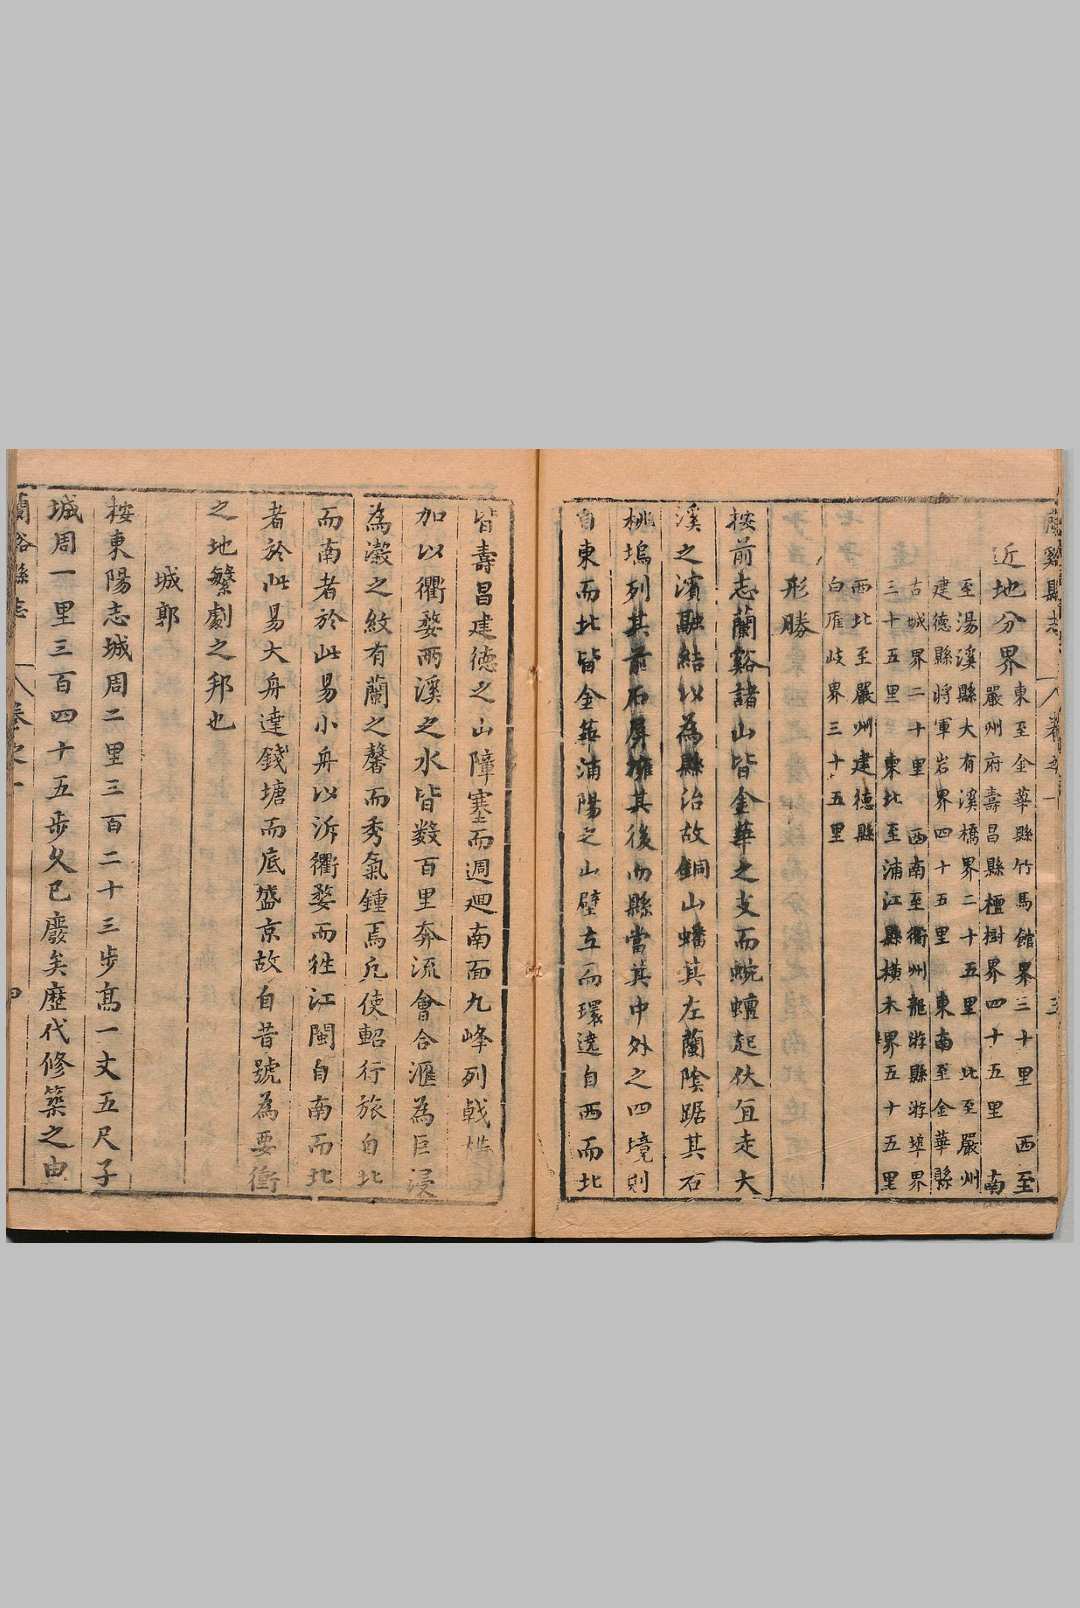 蘭谿縣志 卷之一 三
近地分界 東至金華縣竹馬館界三十里 西至
嚴州府壽昌縣檀樹界四十五里 南
至湯溪縣大有溪橋界二十五里 北至嚴州
建德縣將軍岩界四十五里 東南至金華縣
古城界二十里 西南至衢州龍游縣游埠界
三十五里 東北至浦江縣橫木界五十五里
西北至嚴州建德縣
白雁岐界三十五里
形勝
按前志蘭谿諸山皆金華之支而蜿蟺起伏宜走大
溪之濱融結以為縣治故銅山蟠其左蘭陰踞其石
桃塢列其前石屏擁其後而縣當其中外之四境則
自東而北皆金華浦陽之山壁立而環遶自西而北
皆壽昌建德之山障塞而週迴南面九峰列戟
加以衢婺兩溪之水皆数百里奔流會合滙為巨浸
為瀫之紋有蘭之馨而秀氣鍾焉凢使軺行旅自北
而南者於此易小舟以泝衢婺而徃江閩自南而北
者於此易大舟達錢塘而底盛京故自昔號為要衝
之地繁劇之邦也
城郭
按東陽志城周二里三百二十三步高一丈五尺子
城周一里三百四十五步久已廢矣歷代修築之由
蘭谿縣志 卷之一 四